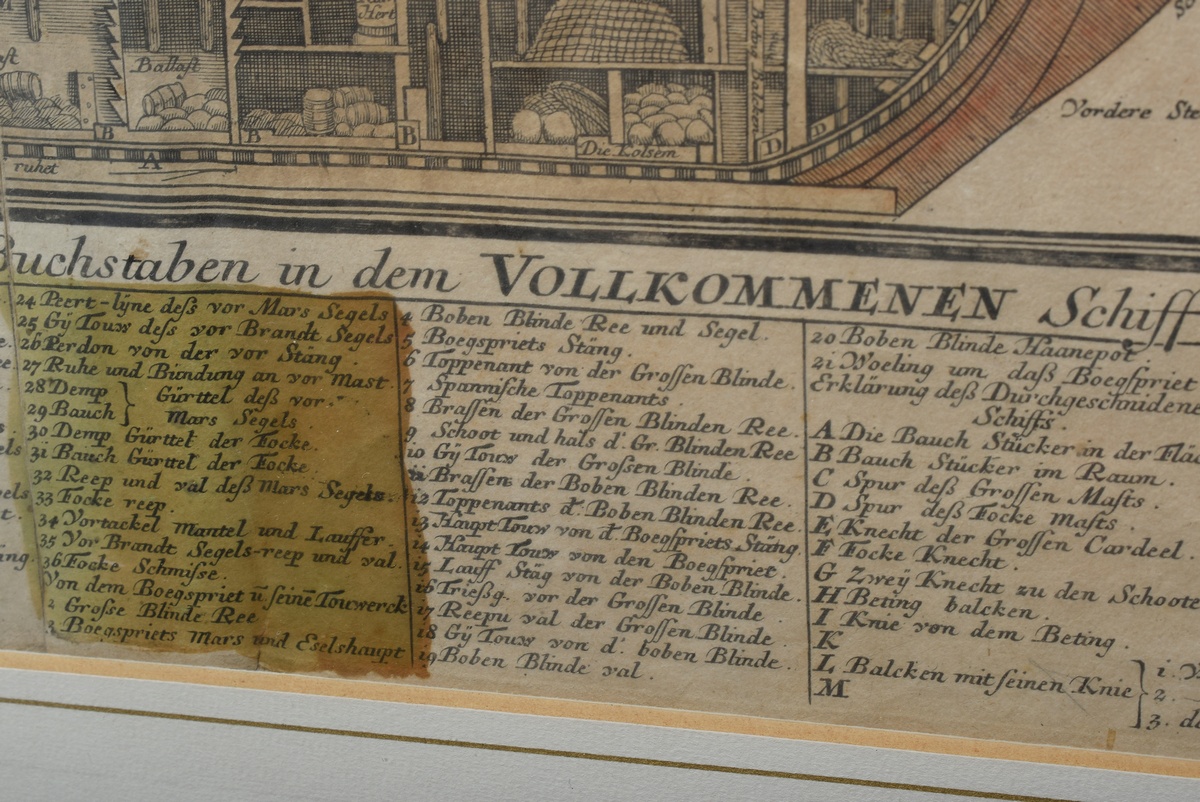 Ballast
B
B
B
Die Kolsem
Beting Balcken
D
D
Vordere
ruhet
A
Buchstaben in dem VOLLKOMMENEN Schiff
24 Peert-lÿne deß vor Mars Segels
25 Gÿ Touw deß vor Brandt Segels
26 Perdon von der vor Stäng.
27 Ruhe und Bündung an vor Mast.
28 Demp } Gürttel deß vor.
29 Bauch } Mars Segels
30 Demp Gürttel der Focke.
31 Bauch Gürttel der Focke
32 Reep und val deß Mars Segels.
33 Focke reep.
34 Vortackel Mantel und Lauffer.
35 Vor Brandt Segels-reep und val.
36 Focke Schmisse.
Von dem Boegspriet ū seinē Touwerck
2 Große Blinde Ree
3 Boegspriets Mars und Eselshaupt
4 Boben Blinde Ree und Segel.
5 Boegspriets Stäng.
6 Toppenant von der Grossen Blinde.
7 Spannische Toppenants.
8 Brassen der Grossen Blinden Ree.
9 Schoot und hals d' Gr. Blinden Ree
10 Gÿ Touw der Großen Blinde.
11 Brassen der Boben Blinden Ree
12 Toppenants d' Boben Blinden Ree.
13 Haupt Touw von d' Boegspriets Stäng.
14 Haupt Touw von den Boegspriet.
15 Lauff Stäg von der Boben Blinde.
16 Trießg. vor der Grossen Blinde
17 Reepu val der Grossen Blinde
18 Gÿ Touw von d' boben Blinde.
19 Boben Blinde val.
20 Boben Blinde Haanepot.
21 Woeling um daß Boegspriet
Erklärung deß Durchgeschnidene
Schiffs.
A Die Bauch Stücker in der Fläc
B Bauch Stücker im Raum.
C Spur deß Grossen Masts.
D Spur deß Focke Masts.
E Knecht der Grossen Cardeel.
F Focke Knecht.
G Zweÿ Knecht zu den Schoote
H Beting balcken.
I Knie von dem Beting.
K
L Balcken mit seinen Knie } 1.
M 2.
3.